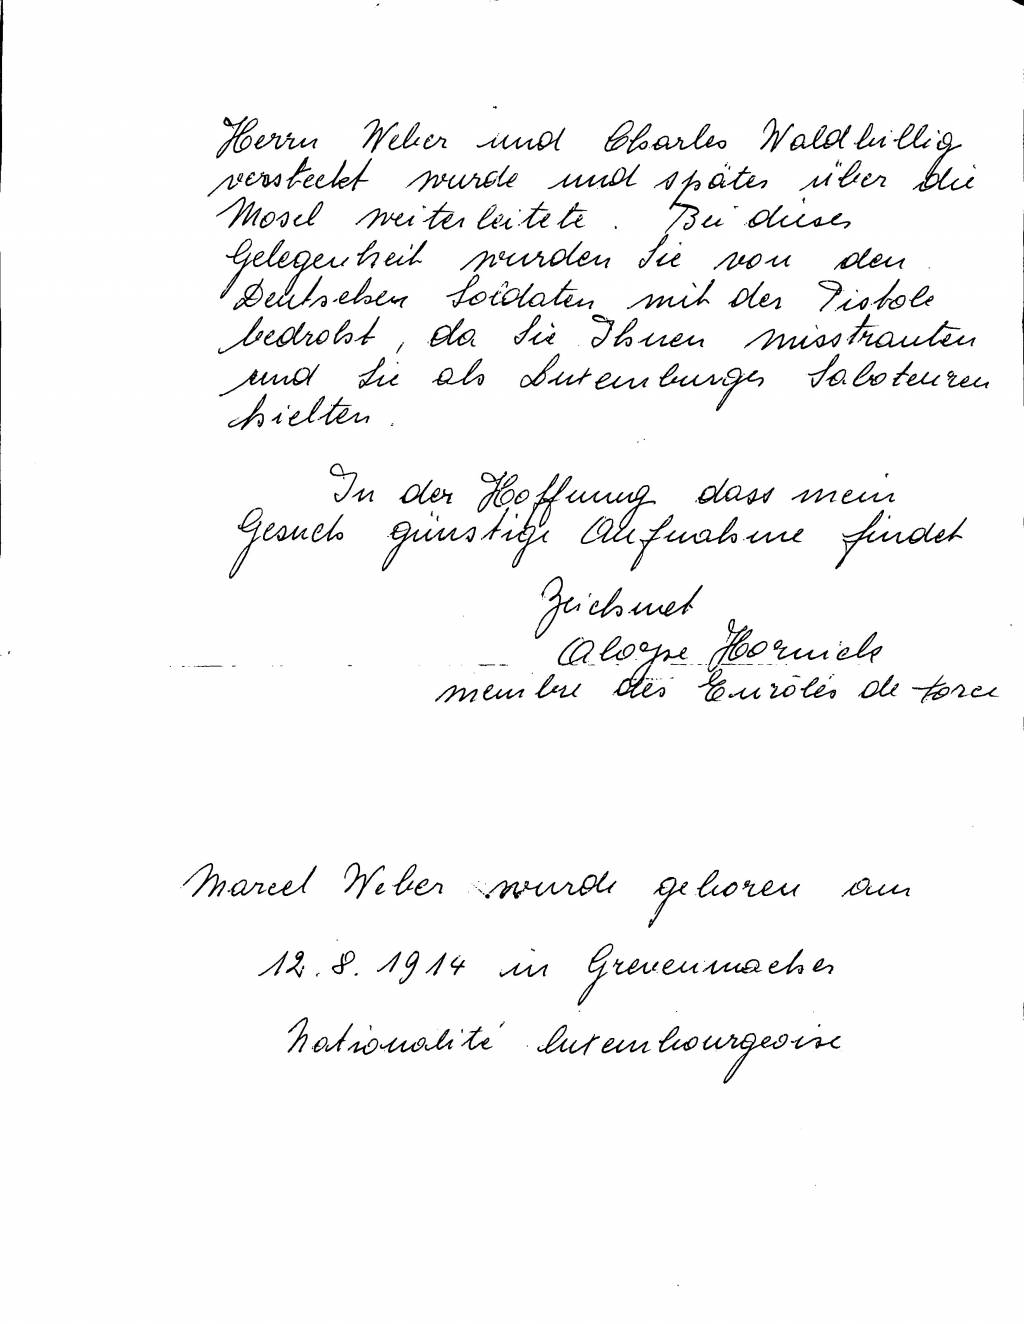 Herrn Weber und Charles Waldbillig
versteckt wurde und später über die
Mosel weiterleitete. Bei dieser
Gelegenheit wurden Sie von den
Deutschen Soldaten mit der Pistole
bedroht, da Sie Ihnen misstrauten
und Sie als Luxemburger Saboteuren
hielten.
In der Hoffnung dass mein
Gesuch günstige Aufnahme findet
Zeichnet
Aloyse Hornick
membre des Enrôlés de force
Marcel Weber wurde geboren am
12.8.1914 in Grevenmacher
Nationalité luxembourgeoise